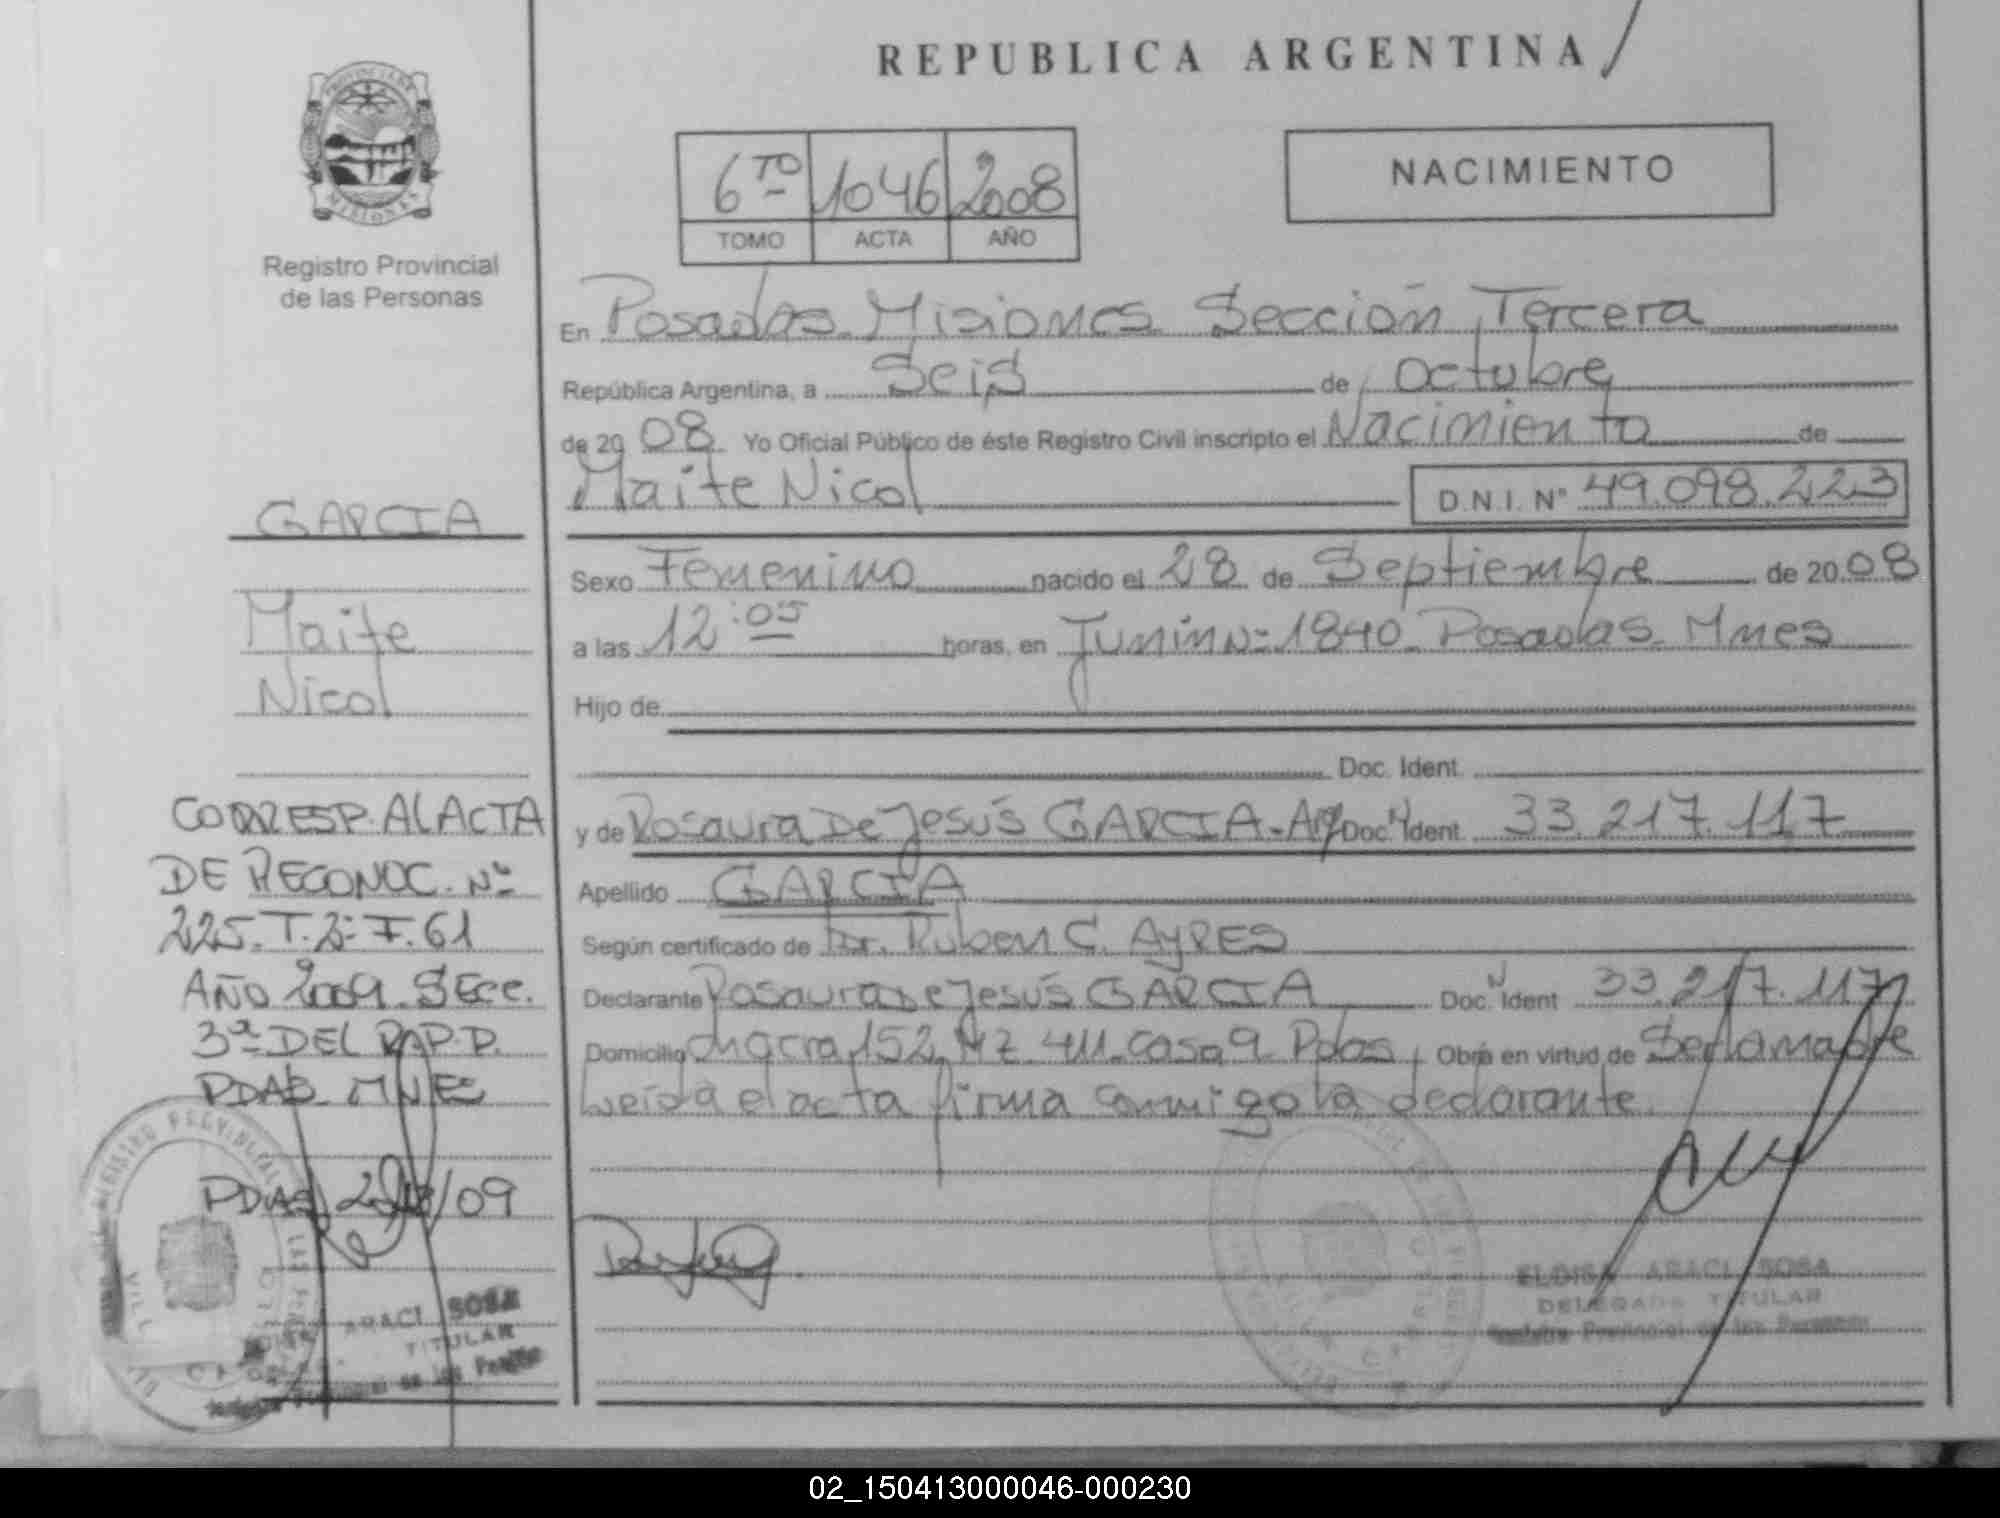 REPUBLICA ARGENTINA
PROVINCIA DE
MISIONES
Registro Provincial
de las Personas
6TO 1046 2008
TOMO ACTA AÑO
NACIMIENTO
En Posadas Misiones Sección Tercera
República Argentina, a Seis de Octubre
de 2008 Yo Oficial Público de éste Registro Civil inscripto el Nacimiento de
Maite Nicol D.N.I. Nº 49.098.223
Sexo Femenino nacido el 28 de Septiembre de 2008
a las 12:05 horas, en Junín Nº 1840 Posadas Mnes
Hijo de
Doc. Ident.
y de Rosaura De Jesús GARCIA - Arg Doc. N Ident. 33.217.117
Apellido GARCIA
Según certificado de Dr. Ruben C. AYRES
Declarante Rosaura De Jesús GARCIA Doc. N Ident 33.217.117
Domicilio Chacra 152 Mz 411 casa 9 Pdas Obra en virtud de Ser la madre
Leída el acta firma conmigo la declarante.
ELOISA ARACI SOSA
DELEGADA TITULAR
Registro Provincial de las Personas
GARCIA
Maite
Nicol
CORRESP. AL ACTA
DE RECONOC. Nº
225. T. 2º F. 61
AÑO 2009 SECC.
3ª DEL R.P.P.
PDAS MNES
PDAS /09
ARACI SOSA
TITULAR
02_150413000046-000230